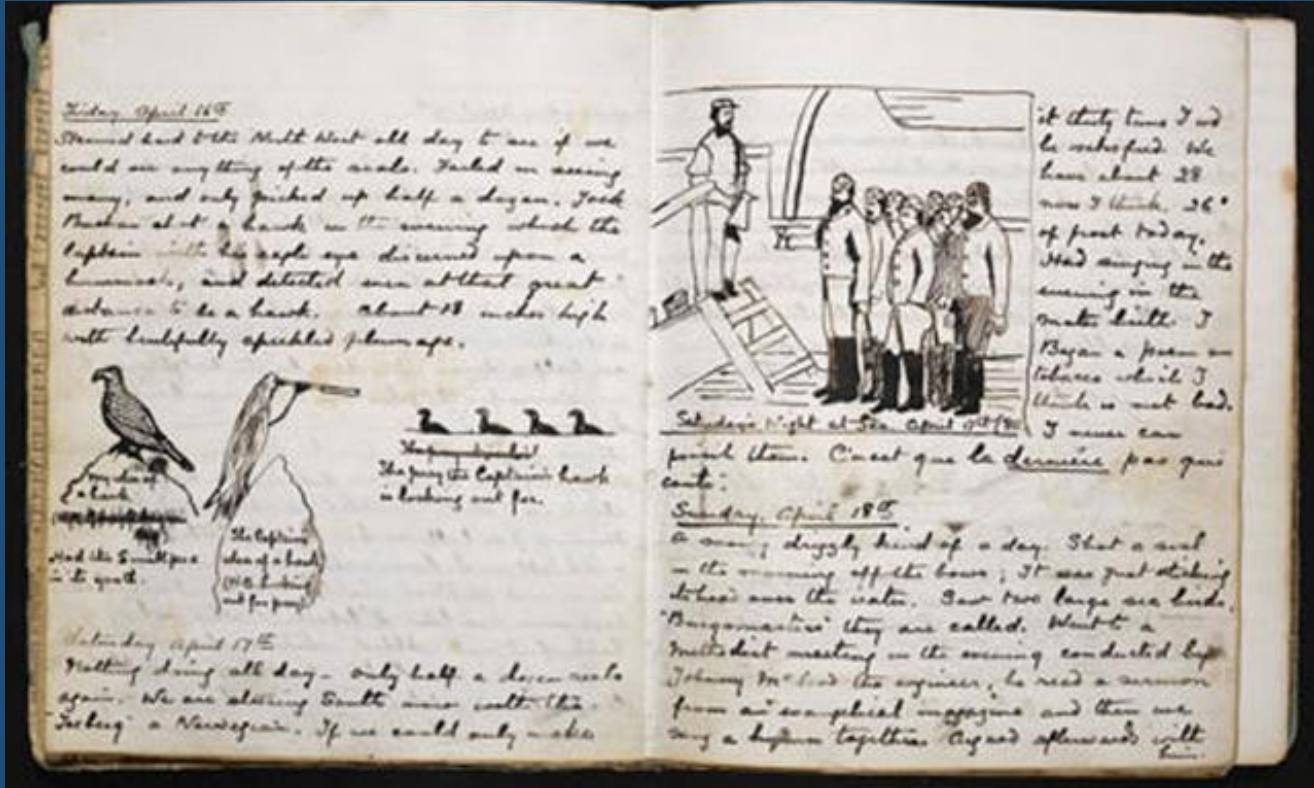 Friday April 16th
Steamed hard to the North West all day to see if we
could see anything of the seals. Failed in seeing
many, and only picked up half a dozen. Jack
Buchan shot a hawk in the evening which the
Captain with his eagle eye discerned upon a
hummock, and detected even at that great
distance to be a hawk. About 18 inches high
with beautifully speckled plumage.
My idea of
a hawk
Had the Smallpox
in its youth.
The Captain's
idea of a hawk
(N.B. looking
out for prey)
The prey the Captain's hawk
is looking out for.
Saturday April 17th
Nothing doing all day - only half a dozen seals
again. We are steering South now with the
a Norwegian. If we could only make
it thirty tons I wd
be satisfied We
have about 28
now I think. 26°
of frost today.
Had singing in the
evening in the
mates berth. I
Began a poem on
tobacco which I
think is not bad.
I never can
Saturday's Night at Sea April 17th/80
finish them. C'est que la dernière pas qui
coute.
Sunday, April 18th
a drizzly kind of a day. Shot a seal
in the morning off the bows; It was just sticking
its head over the water. Saw two large sea birds,
"Burgomasters" they are called. Went to a
Methodist meeting in the evening conducted by
Johnny McLeod the engineer, he read a sermon
from an evangelical magazine and then we
sang a hymn together. Argued afterwards with
him.